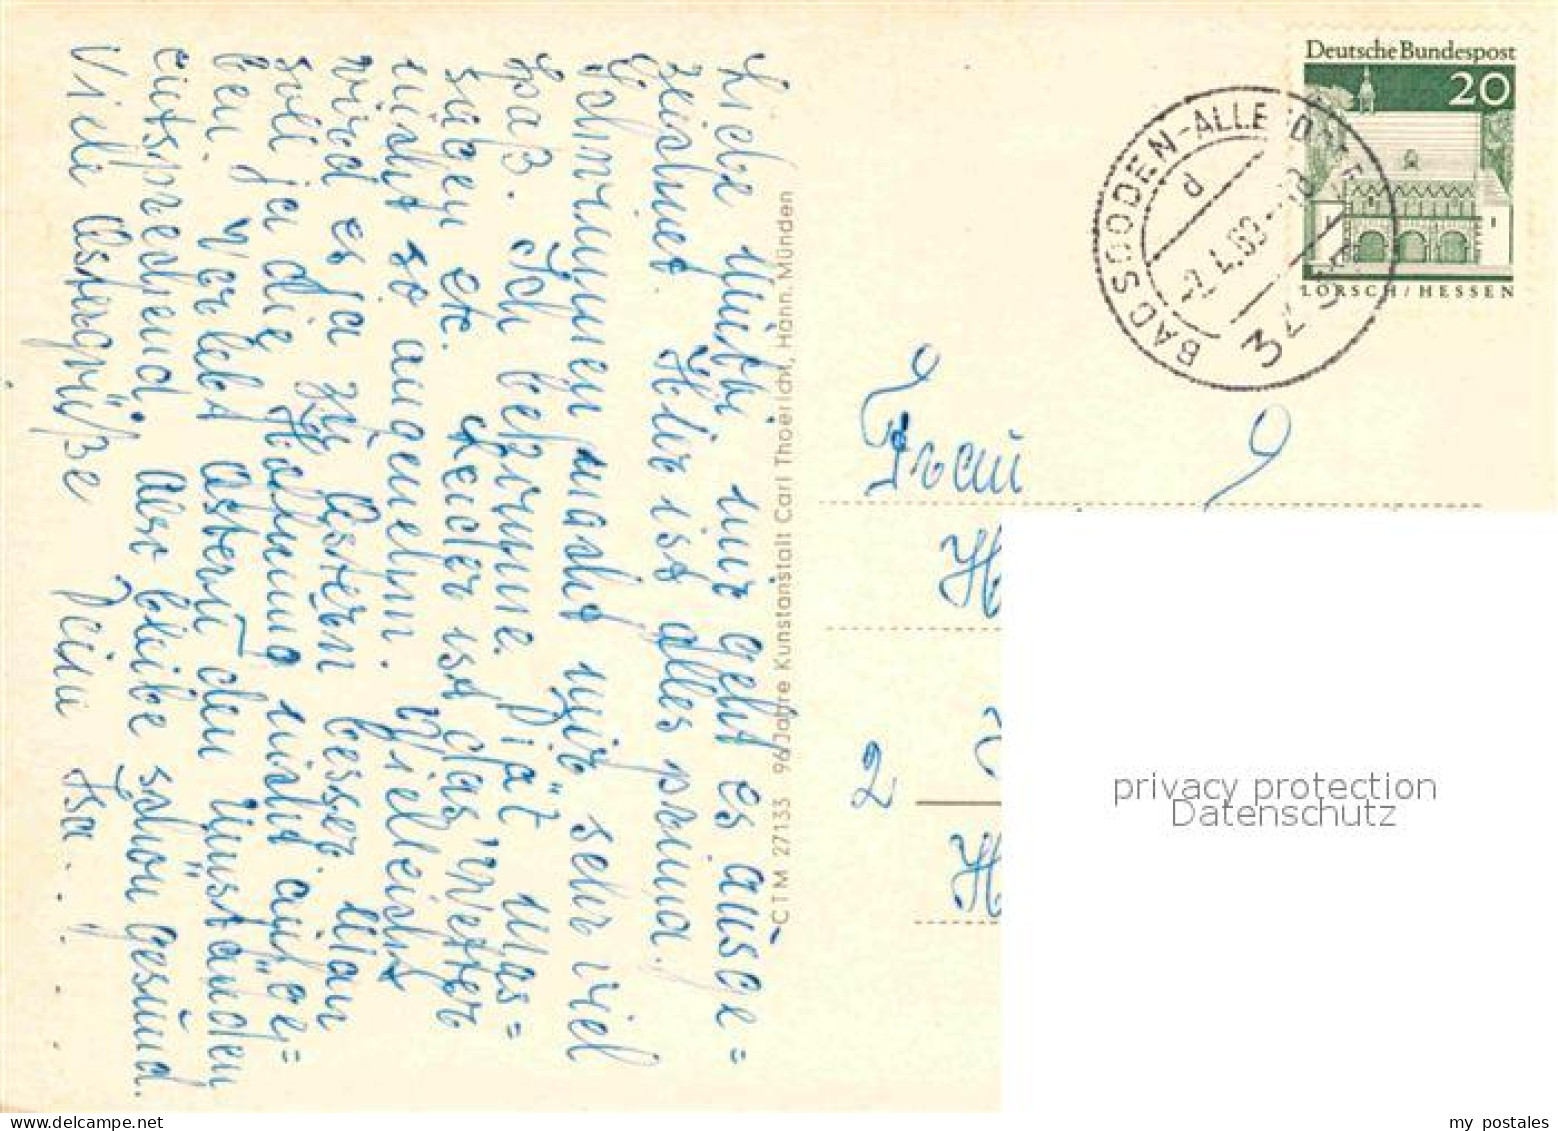 Liebe Mutti, mir geht es ausge=
zeichnet. Hier ist alles prima.
Schwimmen macht mir sehr viel
Spaß. Ich bekomme Diät Mas=
sagen etc. Leider ist das Wetter
nicht so angenehm. Vielleicht
wird es ja zu Ostern besser. Man
soll ja die Hoffnung nicht aufge=
ben. Verlebt Ostern den Umständen
entsprechend, also bleibe schön gesund.
Viele Ostergrüße Deine Isa...
CTM 27133 96 Jahre Kunstanstalt Carl Thoericht, Hann. Münden
Deutsche Bundespost
20
LORSCH/HESSEN
BAD SOODEN-ALLENDORF
d
-2.4.69
3437
Frau
H
2
H
privacy protection
Datenschutz
my postales